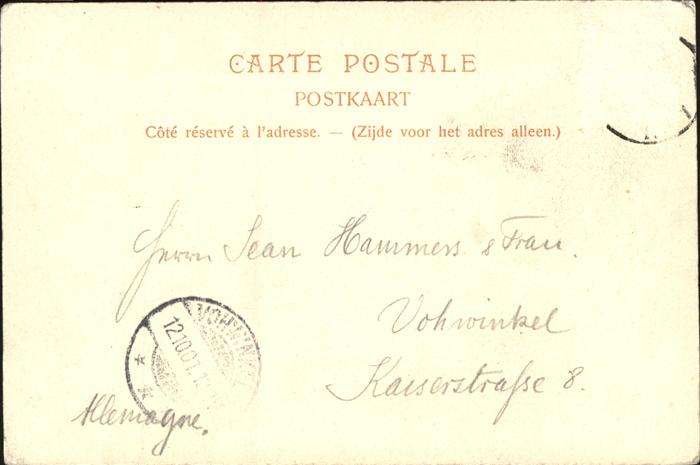 CARTE POSTALE
POSTKAART
Côté réservé à l'adresse. — (Zijde voor het adres alleen.)
Herrn Jean Hammers & Frau.
Vohwinkel
Kaiserstraſse 8.
VOHWINKEL
12.10.01.
Allemagne.